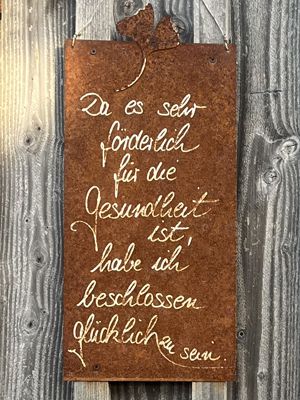 Da es sehr
förderlich
für die
Gesundheit
ist,
habe ich
beschlossen
glücklich zu sein.